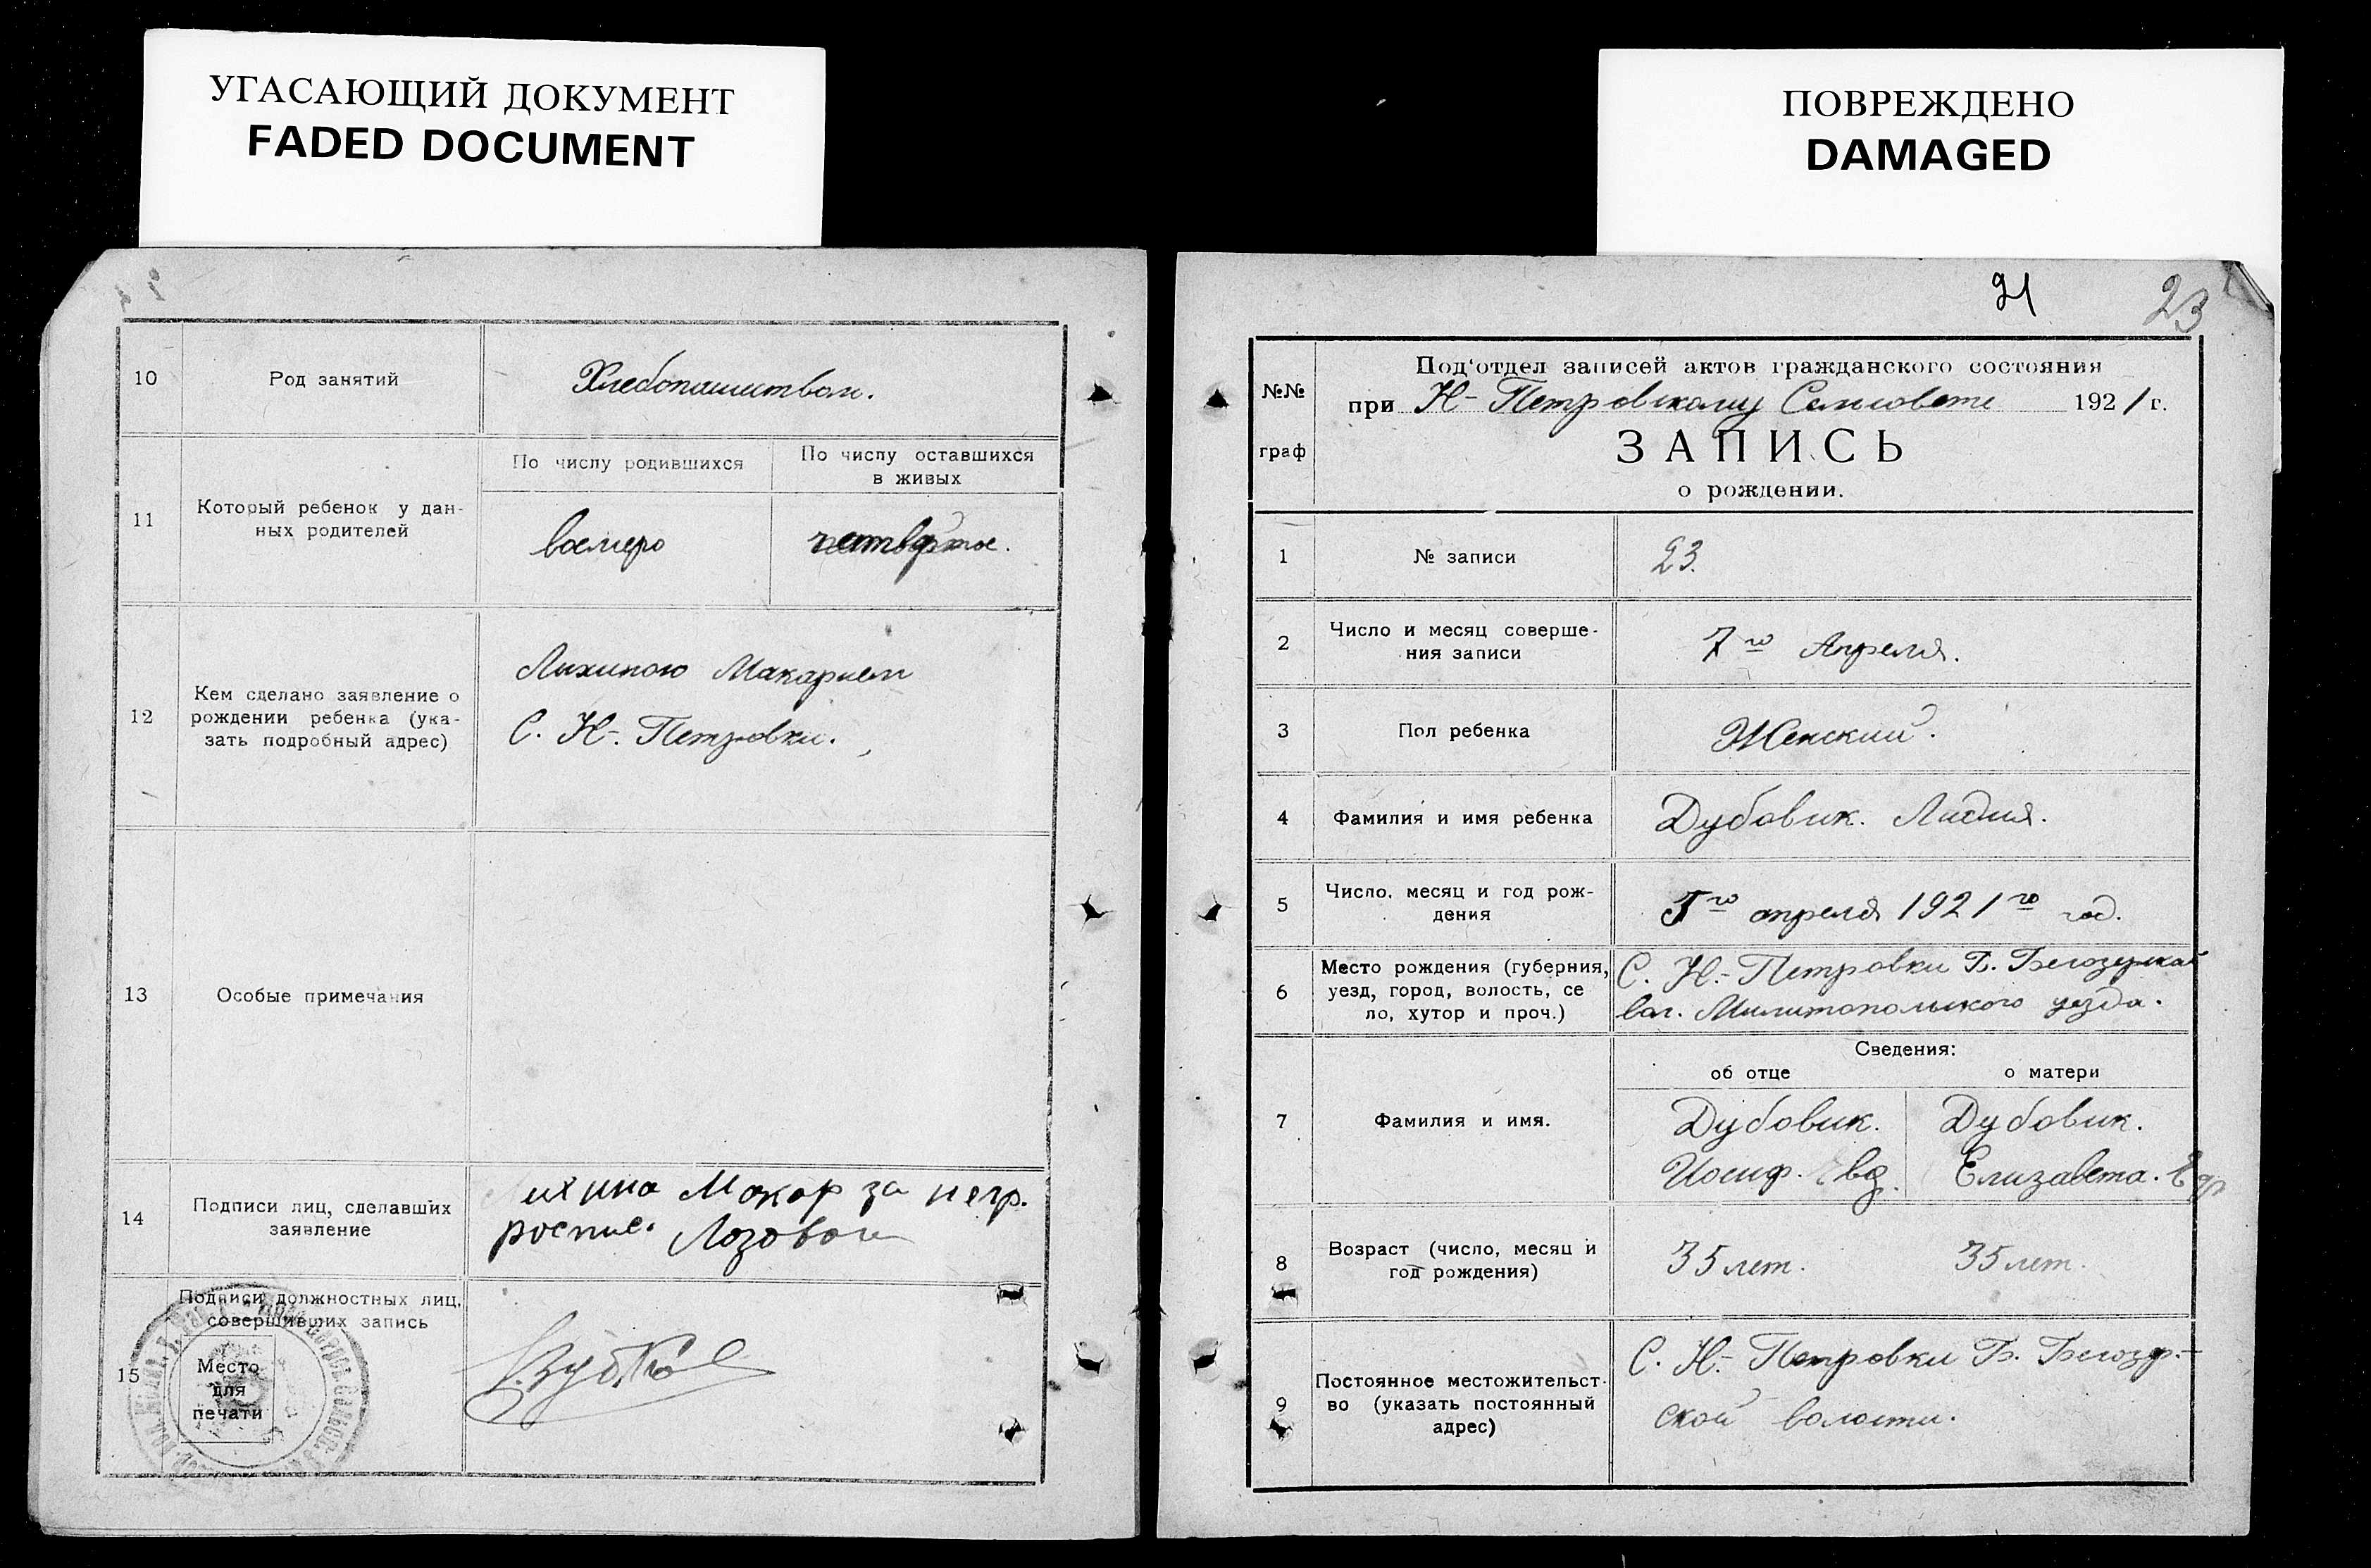 УГАСАЮЩИЙ ДОКУМЕНТ
FADED DOCUMENT
ПОВРЕЖДЕНО
DAMAGED
10
Род занятий
Хлебопашиством.
11
Который ребенок у дан-
ных родителей
По числу родившихся
По числу оставшихся
в живых
восмеро
четвертое.
12
Кем сделано заявление о
рождении ребенка (ука-
зать подробный адрес)
Лихиною Макарием
С. Н-Петровки.
13
Особые примечания
14
Подписи лиц, сделавших
заявление
Лихина Макар за негр.
роспис. Лозовои
15
Подписи должностных лиц,
совершивших запись
Место
для
печати
21
23
№№
граф
Под'отдел записей актов гражданского состояния
при Н-Петровскому Сельсовете 1921 г.
ЗАПИСЬ
о рождении.
1
№ записи
23.
2
Число и месяц соверше-
ния записи
7го Апреля.
3
Пол ребенка
Женский.
4
Фамилия и имя ребенка
Дубовик. Лидия.
5
Число, месяц и год рож-
дения
5го апреля 1921го год.
6
Место рождения (губерния,
уезд, город, волость, се
ло, хутор и проч.)
С. Н.-Петровки Б. Белозерской
вол. Милитопольского уезда.
Сведения:
об отце
о матери
7
Фамилия и имя.
Дубовик.
Иосиф.
Дубовик.
Елизавета.
8
Возраст (число, месяц и
год рождения)
35 лет.
35 лет.
9
Постоянное местожительст-
во (указать постоянный
адрес)
С. Н.-Петровки Б. Белозер.-
ской волости.